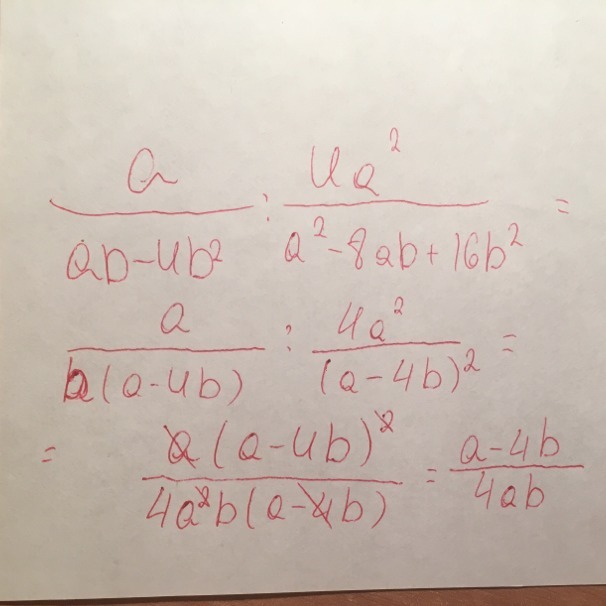 a/(ab-4b²) : 4a²/(a²-8ab+16b²) =
a/(b(a-4b)) : 4a²/(a-4b)² =
= a(a-4b)²/(4a²b(a-4b)) = (a-4b)/(4ab)